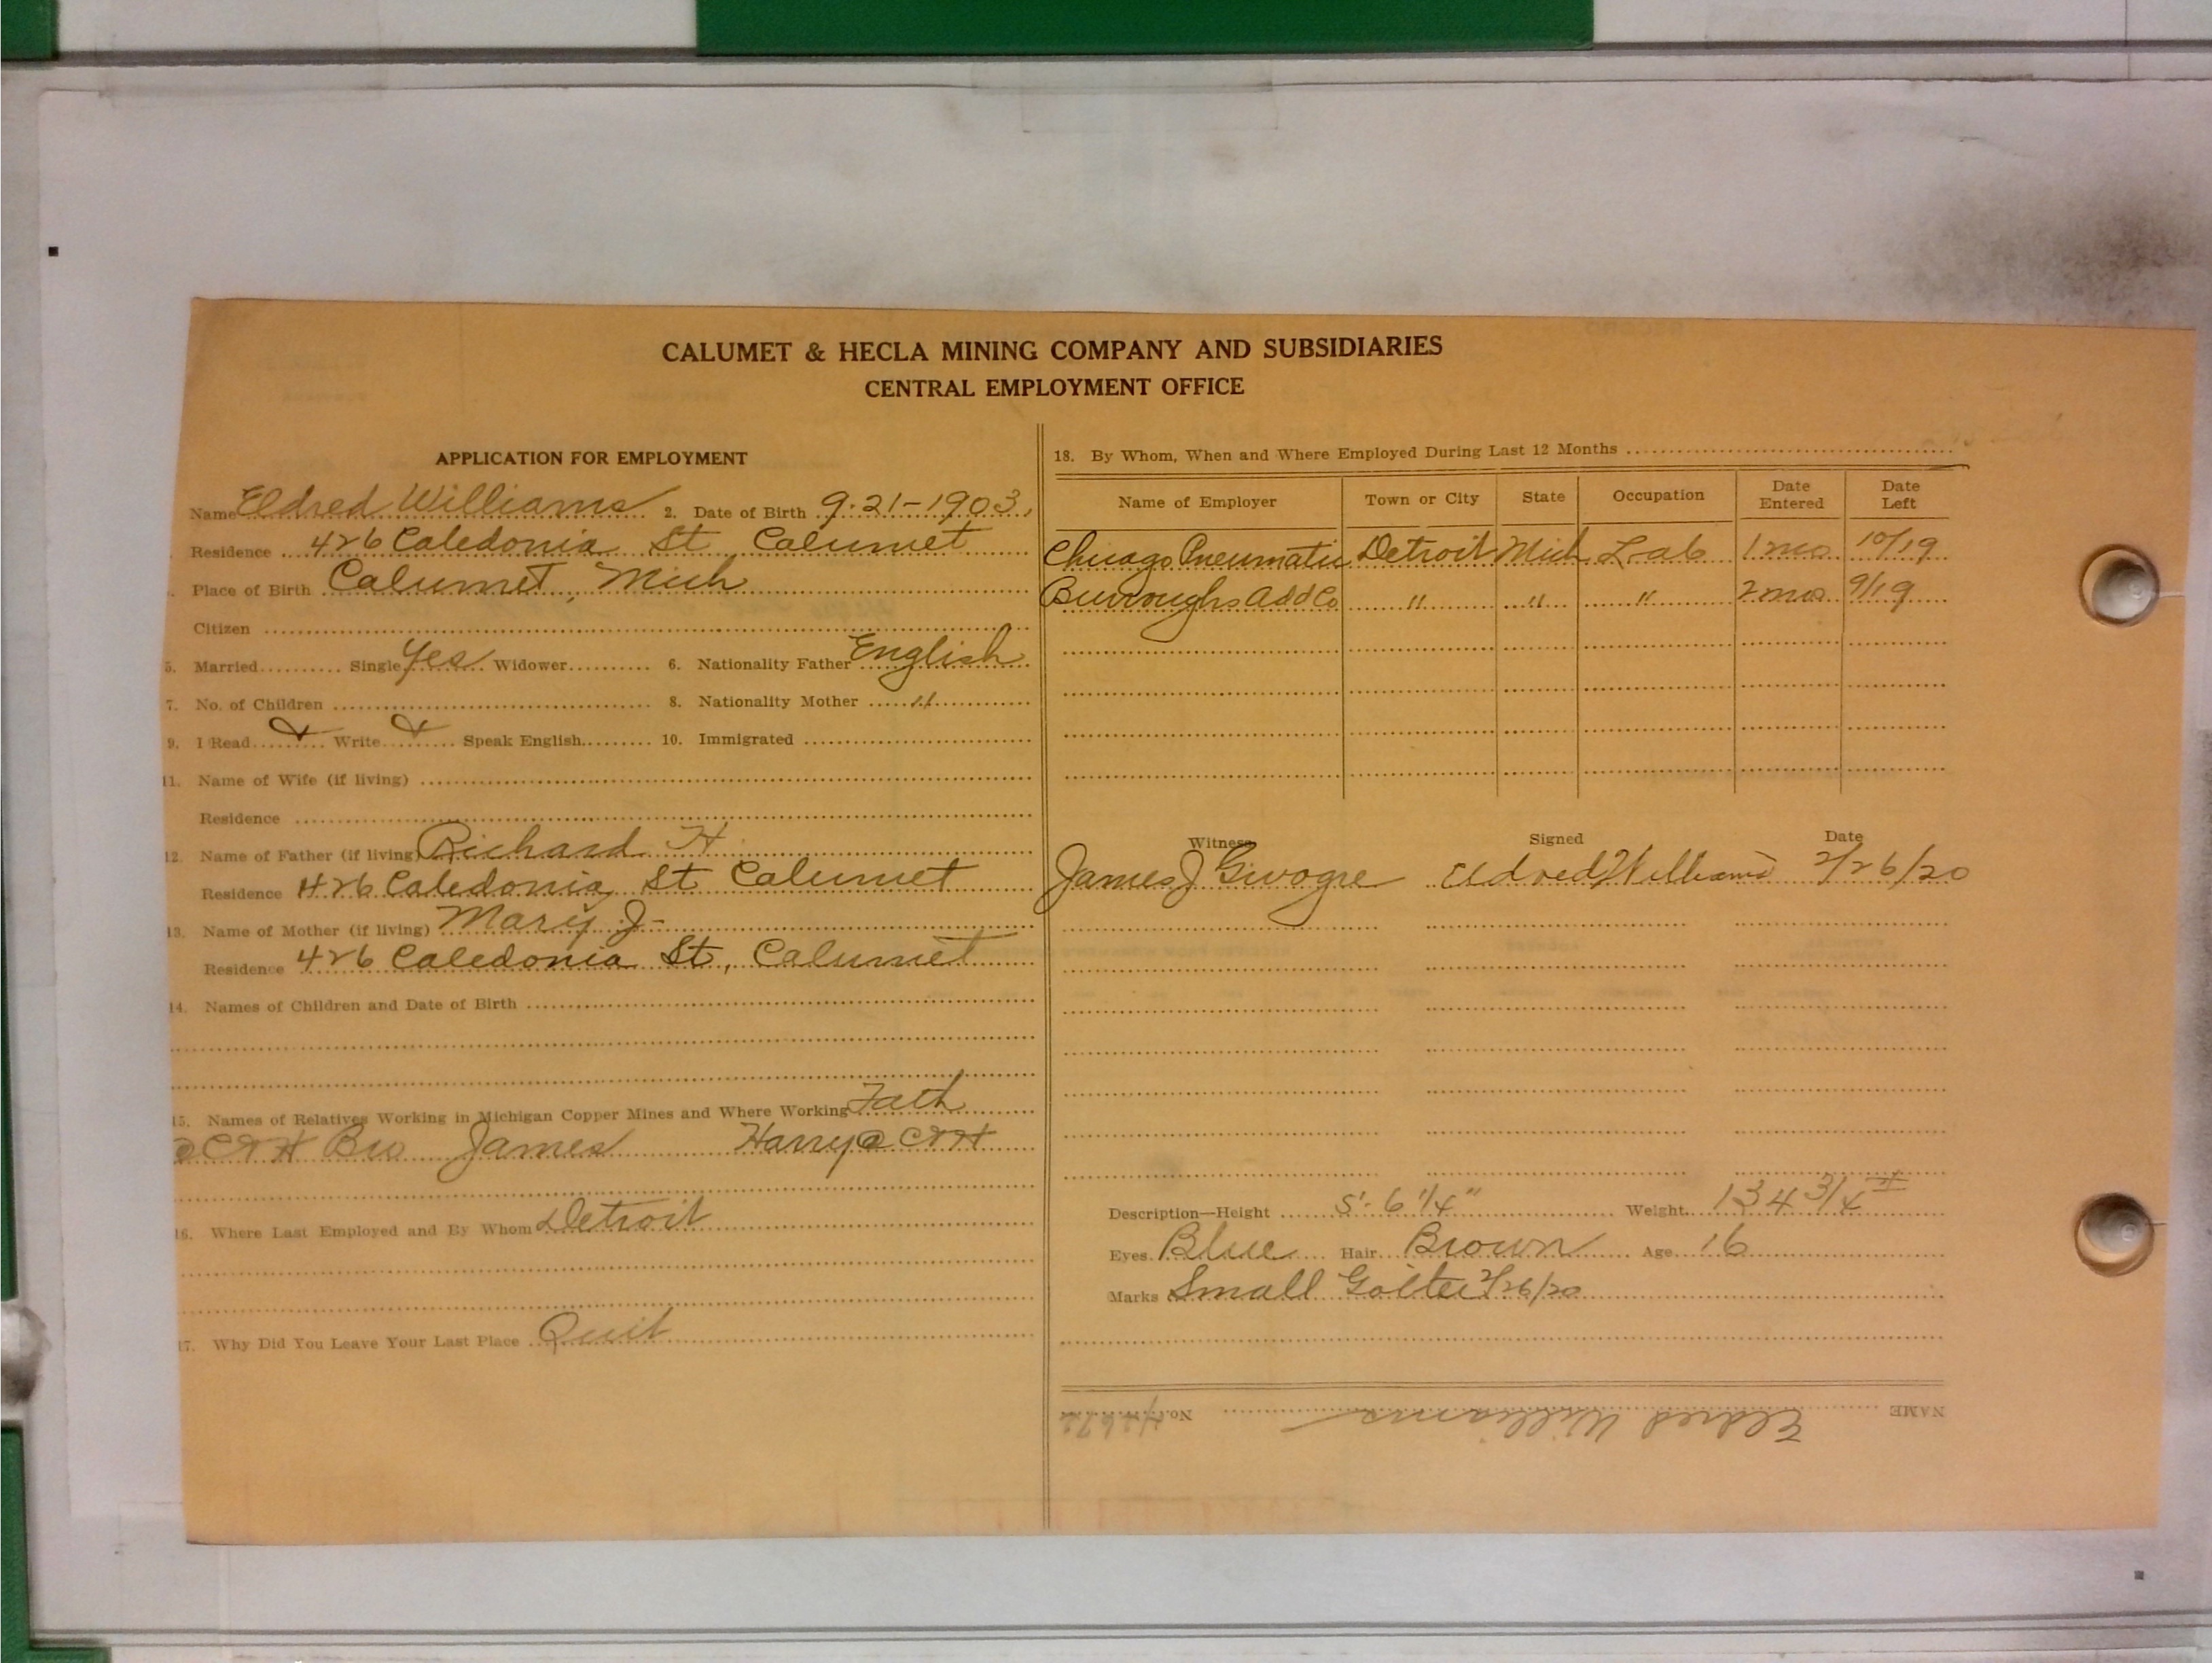 CALUMET & HECLA MINING COMPANY AND SUBSIDIARIES
CENTRAL EMPLOYMENT OFFICE
APPLICATION FOR EMPLOYMENT
Name Eldred Williams 2. Date of Birth 9-21-1903
Residence 426 Caledonia St Calumet
Place of Birth Calumet, Mich
Citizen
5. Married Single Yes Widower 6. Nationality Father English
7. No. of Children 8. Nationality Mother "
9. I Read Write Speak English 10. Immigrated
11. Name of Wife (if living)
Residence
12. Name of Father (if living) Richard H
Residence 426 Caledonia St Calumet
13. Name of Mother (if living) Mary J-
Residence 426 Caledonia St, Calumet
14. Names of Children and Date of Birth
15. Names of Relatives Working in Michigan Copper Mines and Where Working Fath
@ C&H Bro James Harry @ C&H
16. Where Last Employed and By Whom Detroit
17. Why Did You Leave Your Last Place Quit
18. By Whom, When and Where Employed During Last 12 Months
Name of Employer Town or City State Occupation Date Entered Date Left
Chicago Pneumatic Detroit Mich Lab 1 mo 10/19
Burroughs Add Co " " " 2 mos 9/19
Witness Signed Date
James J Eldred Williams 2/26/20
Description—Height 5'-6 1/4" Weight 134 3/4 #
Eyes Blue Hair Brown Age 16
Marks Small Goiter 2/26/20
NAME Eldred Williams No.